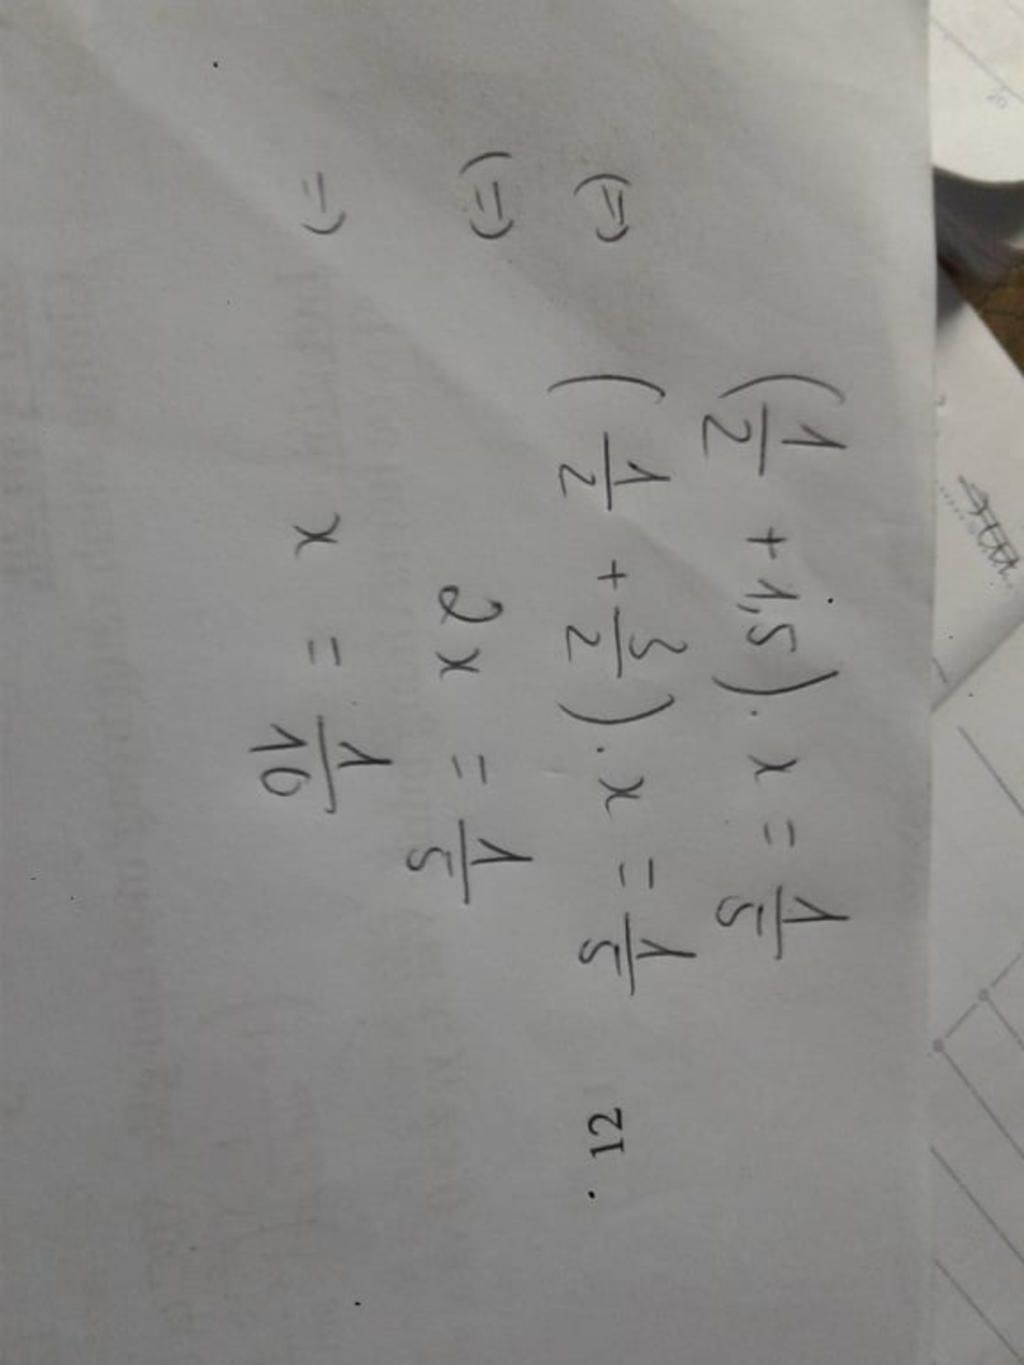 (1/2 + 1,5) . x = 1/5
(=) (1/2 + 3/2) . x = 1/5
(=) 2 x = 1/5
=) x = 1/10
12